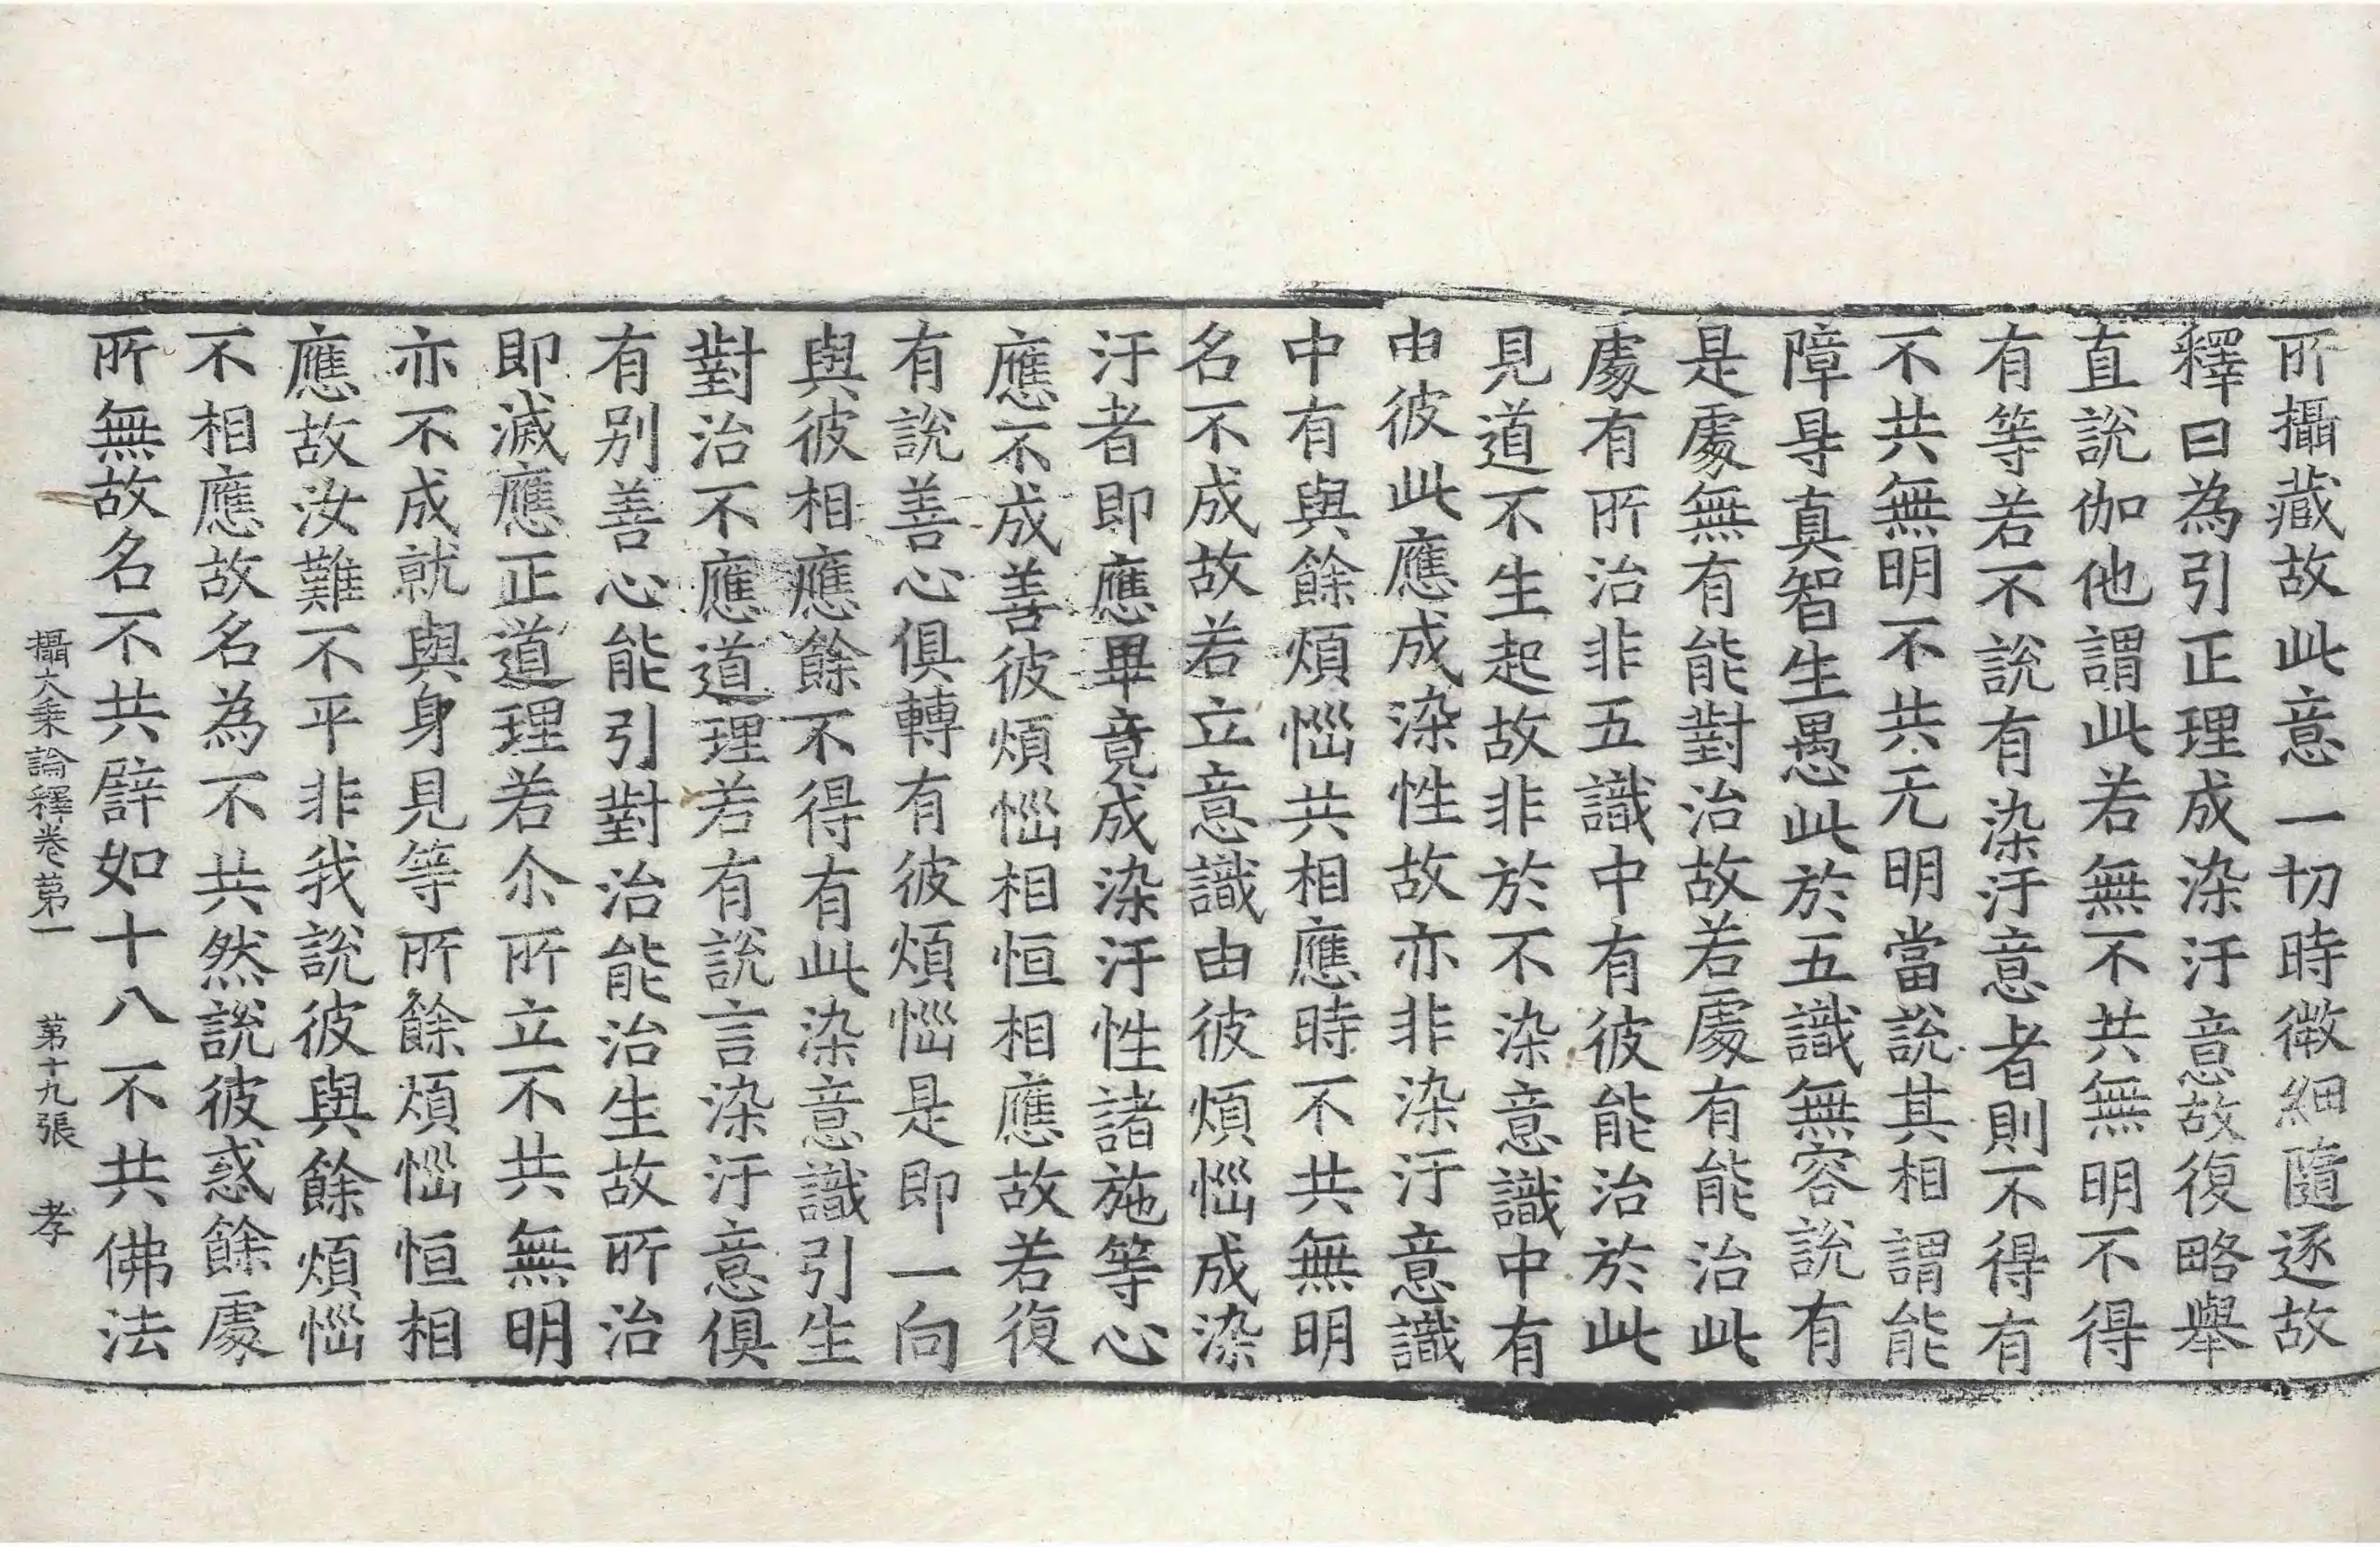 所攝藏故此意一切時微細隨逐故
釋曰為引正理成染汙意故復略舉
直說伽他謂此若無不共無明不得
有等若不說有染汙意者則不得有
不共無明不共无明當說其相謂能
障㝵真智生愚此於五識無容說有
是處無有能對治故若處有能治此
處有所治非五識中有彼能治於此
見道不生起故非於不染意識中有
由彼此應成染性故亦非染汙意識
中有與餘煩惱共相應時不共無明
名不成故若立意識由彼煩惱成染
汙者即應畢竟成染汙性諸施等心
應不成善彼煩惱相恒相應故若復
有說善心俱轉有彼煩惱是即一向
與彼相應餘不得有此染意識引生
對治不應道理若有說言染汙意俱
有别善心能引對治能治生故所治
即滅應正道理若尒所立不共無明
亦不成就與身見等所餘煩惱恒相
應故汝難不平非我說彼與餘煩惱
不相應故名為不共然說彼惑餘處
所無故名不共譬如十八不共佛法
攝大乘論釋卷第一 第十九張 孝